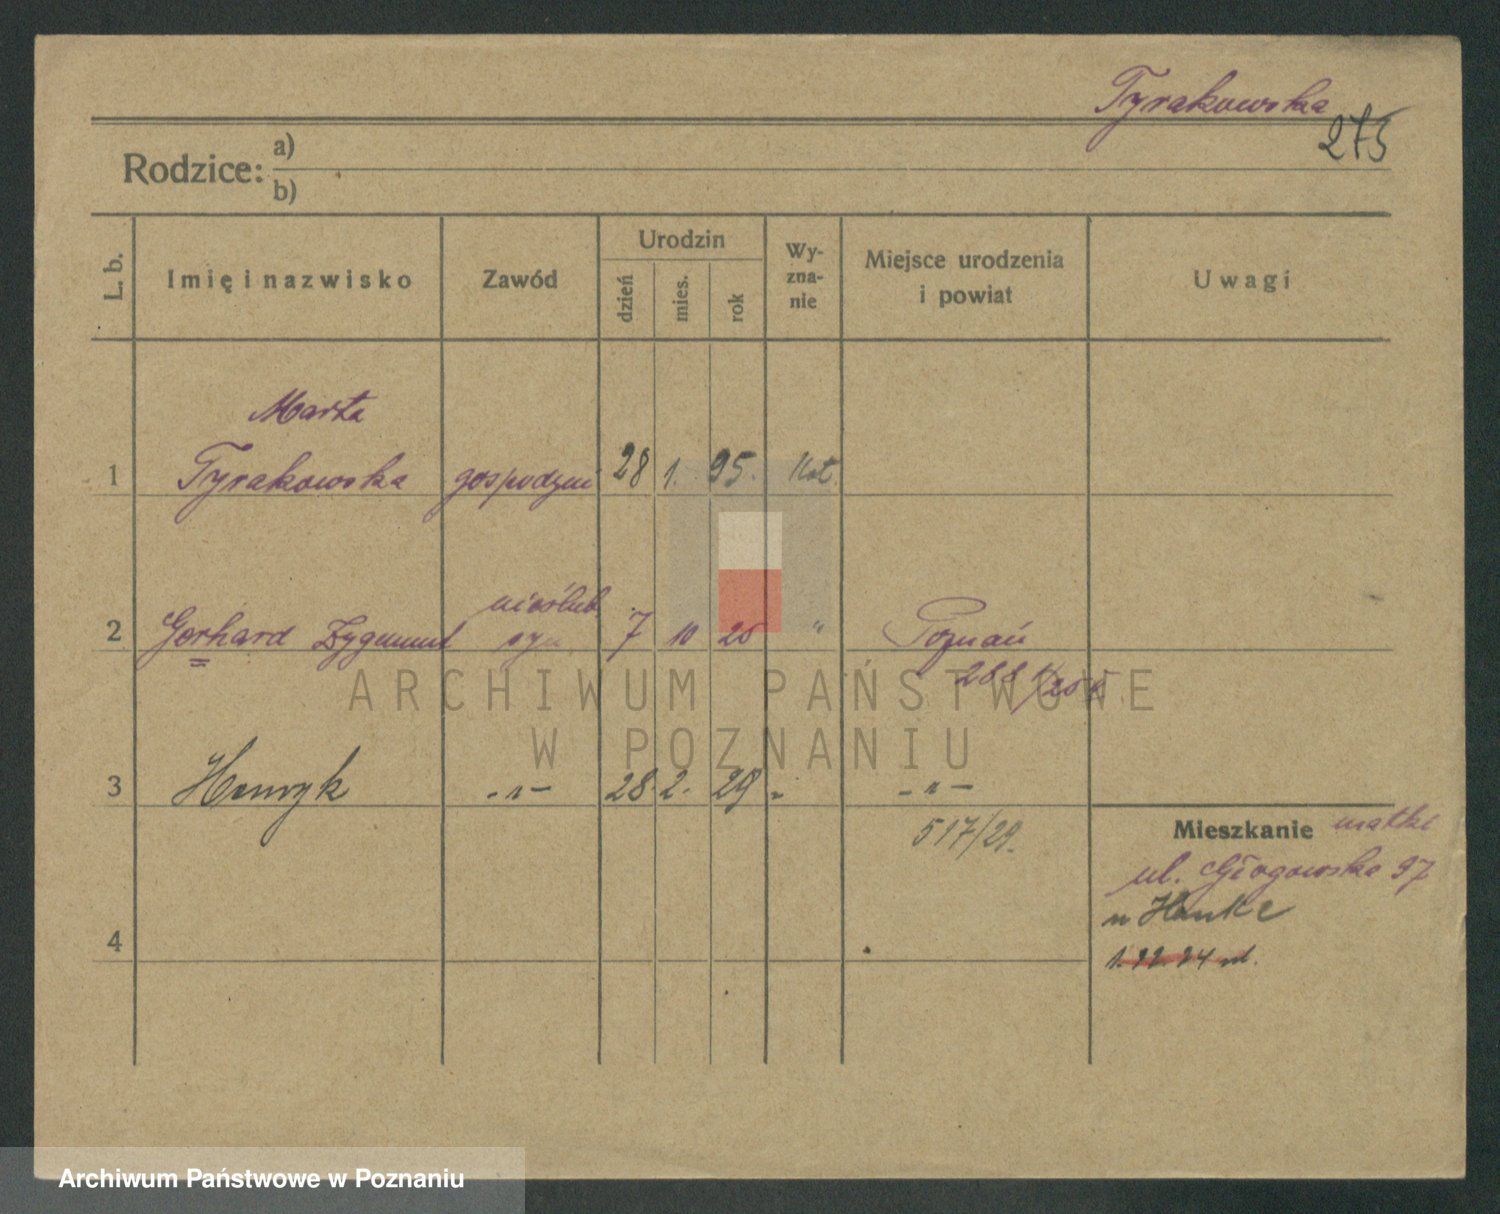 Tyrakowska
275
Rodzice: a)
b)
L. b.
Imię i nazwisko
Zawód
Urodzin
dzień
mies.
rok
Wy-
zna-
nie
Miejsce urodzenia
i powiat
Uwagi
Marta
1 Tyrakowska gospodyni 28 1. 95. kat
nieślub.
2 Gerhard Zygmunt syn 7 10 25 " Poznań
288
ARCHIWUM PAŃSTWOWE
W POZNANIU
3 Henryk -"- 28. 2. 29 " -"-
517/29.
Mieszkanie matki
ul. Głogowska 97
u Hanke
4
Archiwum Państwowe w Poznaniu